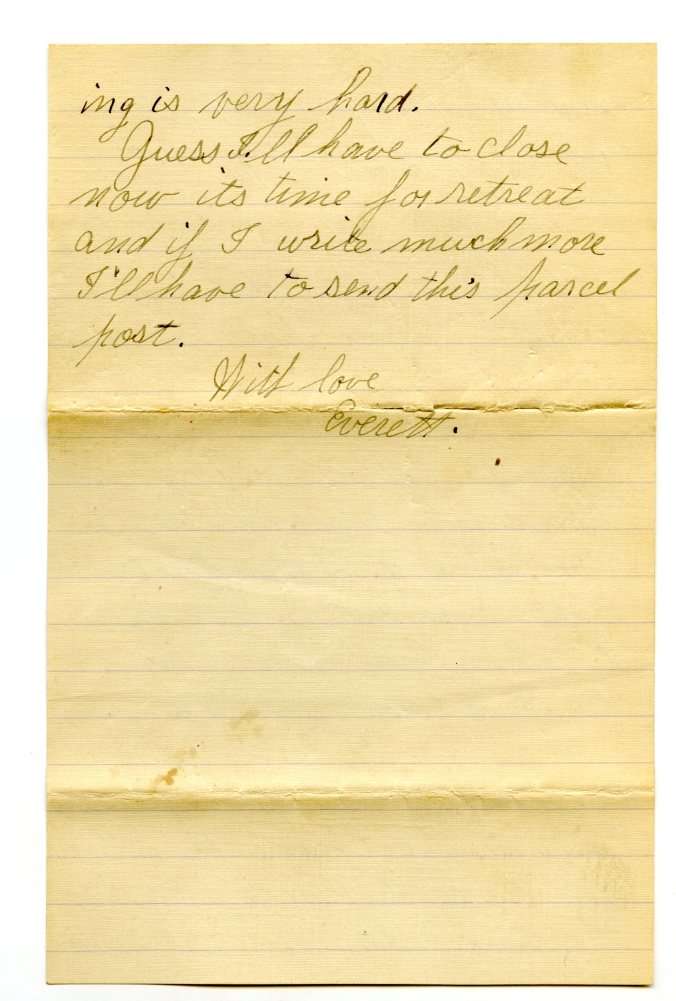 ing is very hard.
Guess I'll have to close
now its time for retreat
and if I write much more
I'll have to send this parcel
post.
With love
Everett.